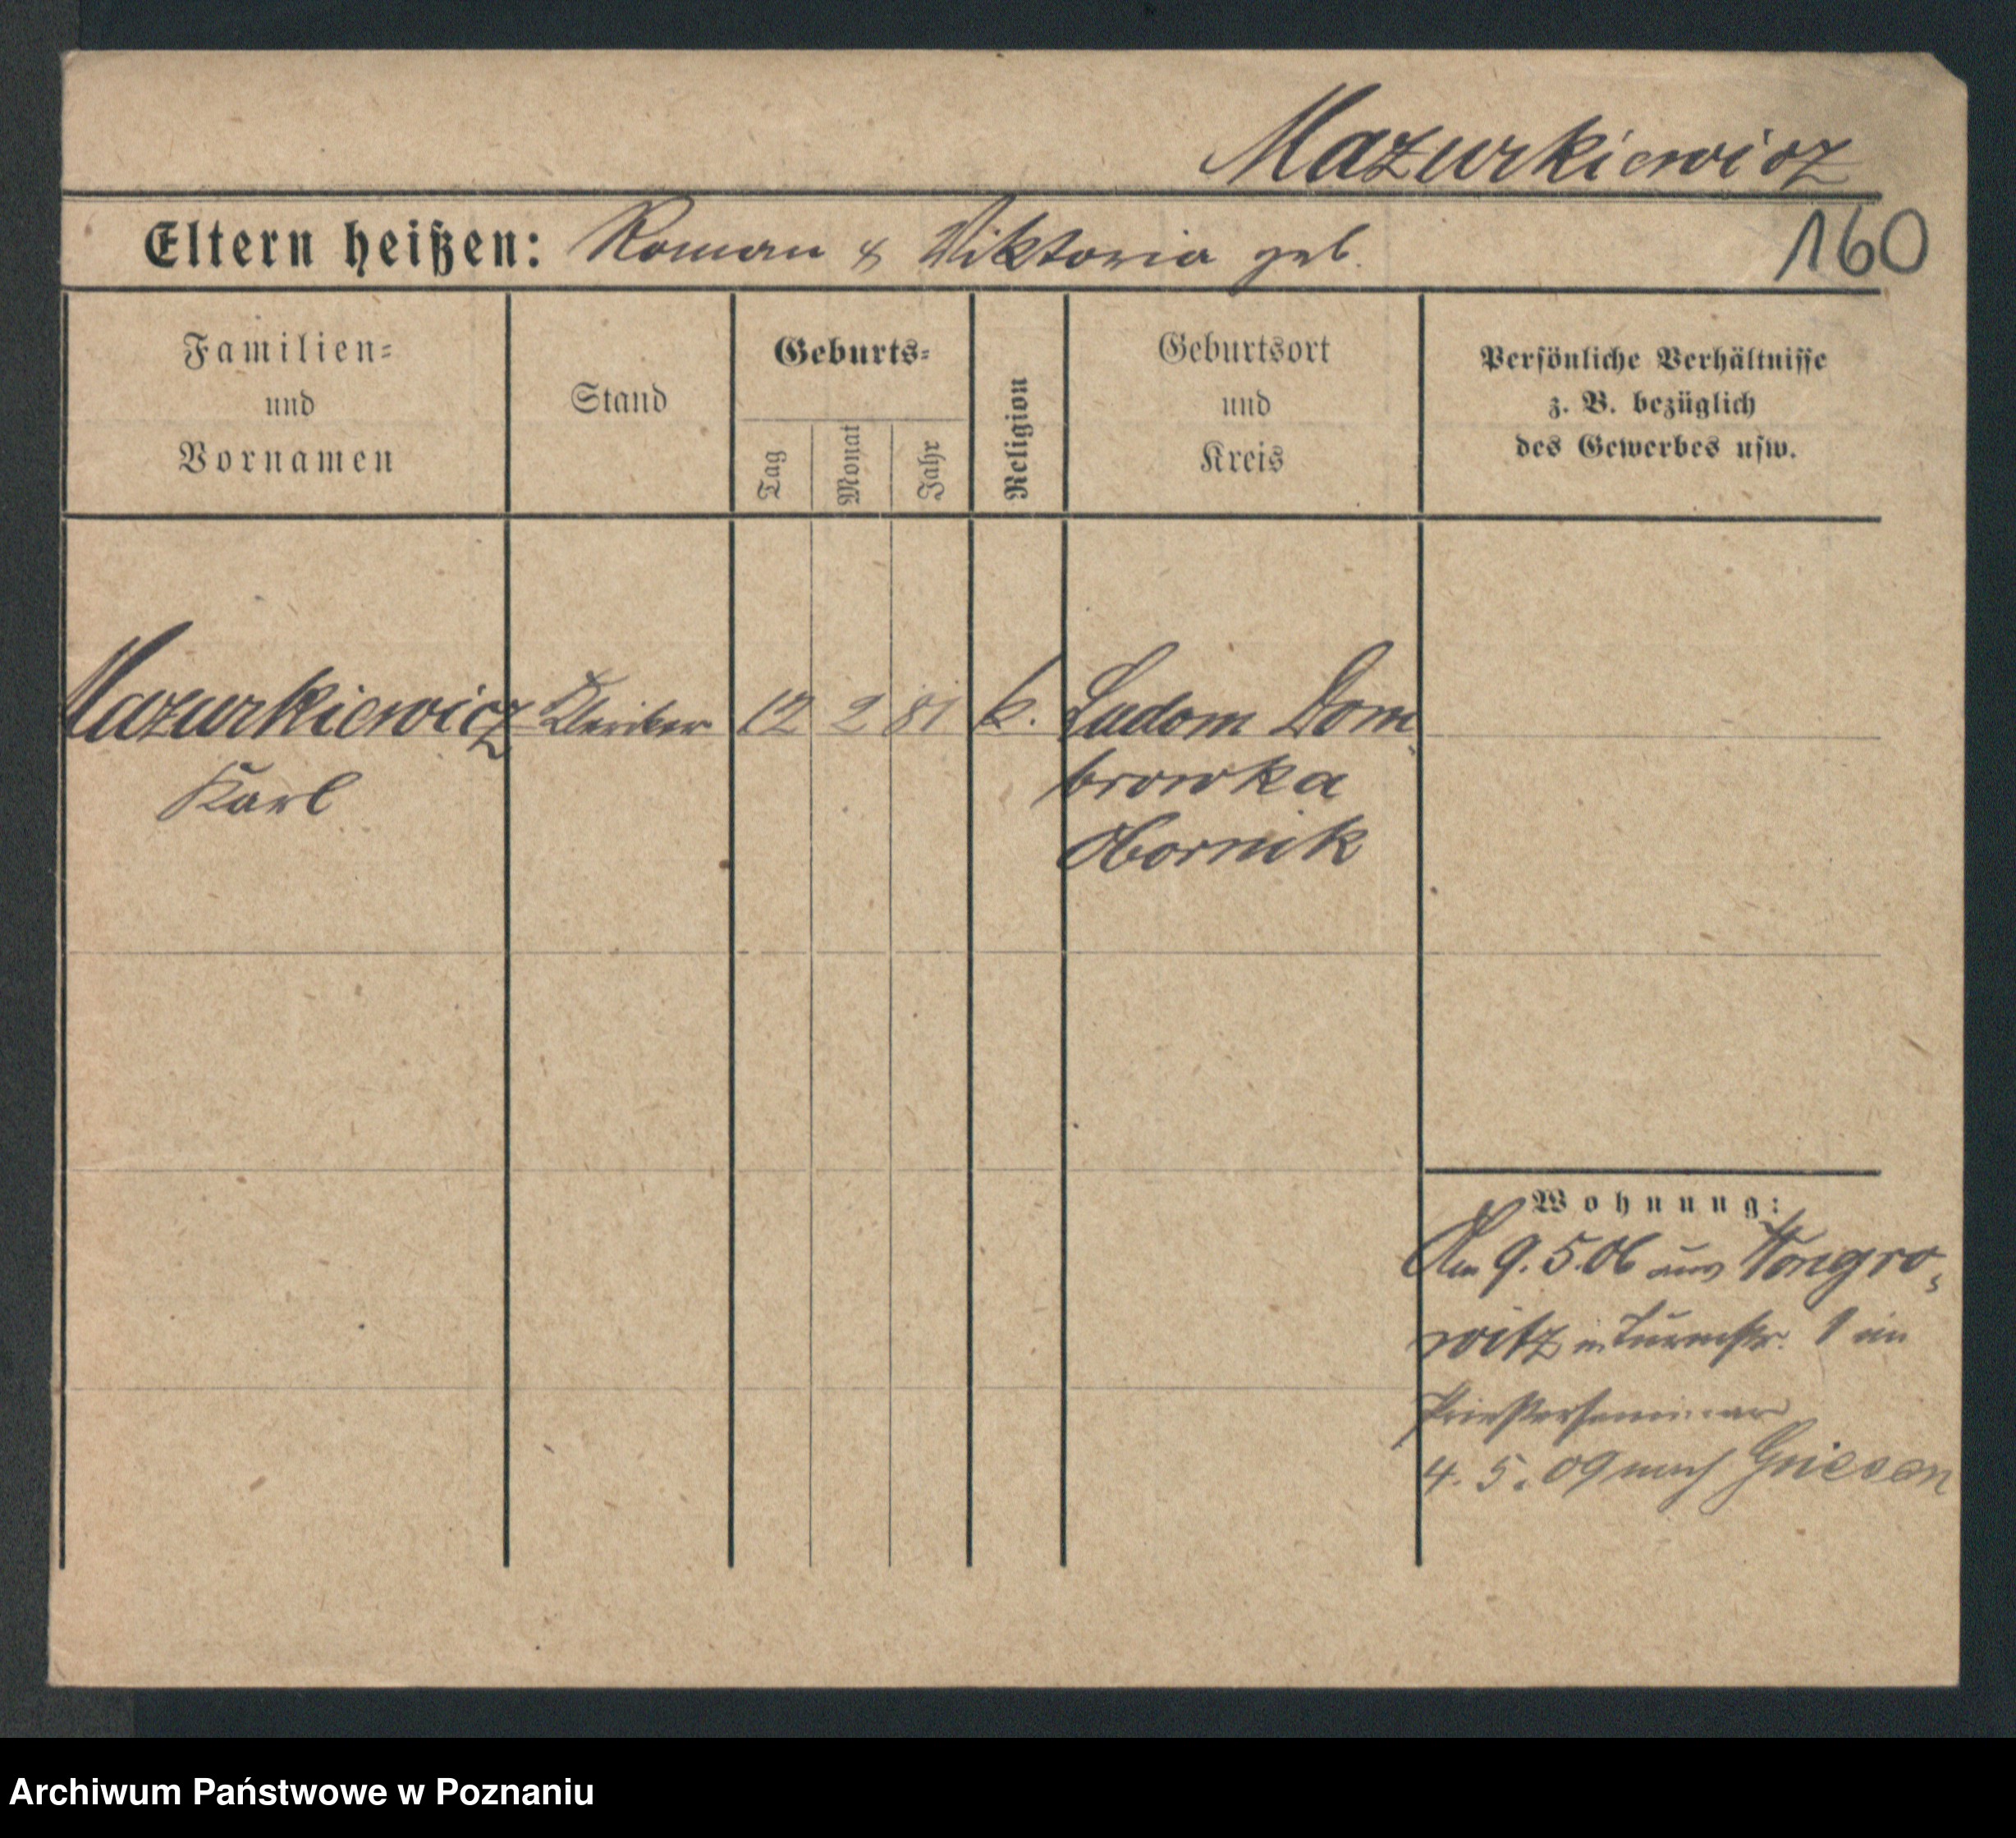 Mazurkiewicz
Eltern heißen: Roman & Viktoria geb.
160
Familien-
und
Vornamen
Stand
Geburts-
Tag
Monat
Jahr
Religion
Geburtsort
und
Kreis
Persönliche Verhältnisse
z. B. bezüglich
des Gewerbes usw.
Mazurkiewicz Kleriker 12 2 81 k. Ludom Dom
Karl
browka
Obornik
Wohnung:
Am 9.5.06 aus Wongro-
witz in Turmstr. 1 im
Priesterseminar
4. 5. 09 nach Gnesen
Archiwum Państwowe w Poznaniu